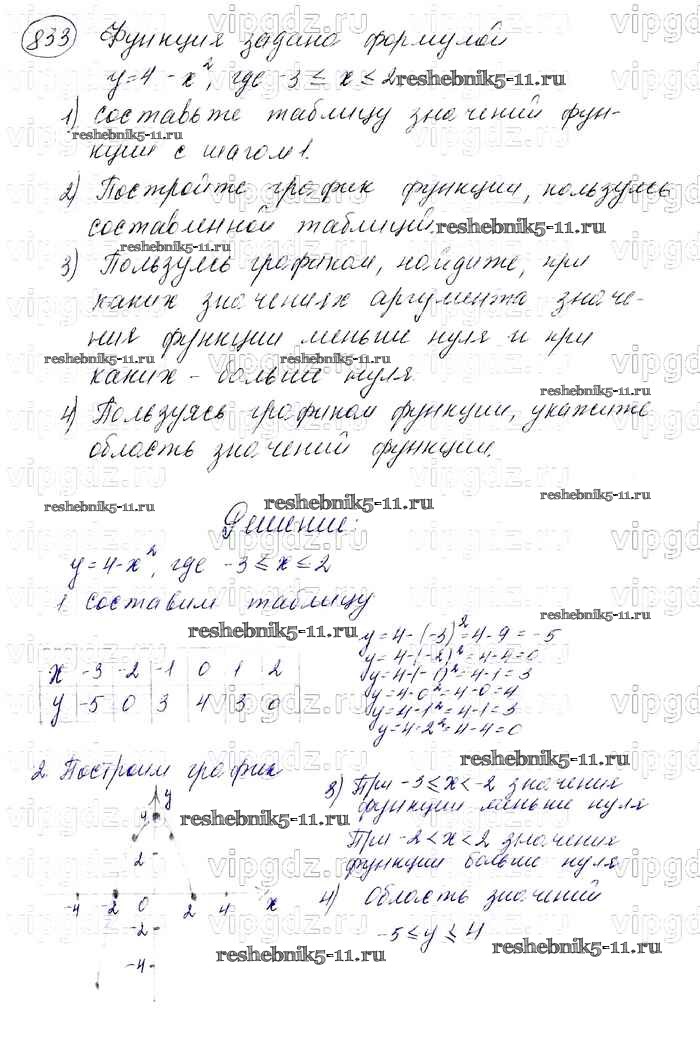 833 Функция задана формулой
y=4-x², где -3 ≤ x ≤ 2 reshebnik5-11.ru
1) составьте таблицу значений фун-
reshebnik5-11.ru
кции с шагом 1.
2) Постройте график функции, пользуясь
составленной таблицей. reshebnik5-11.ru
reshebnik5-11.ru
3) Пользуясь графиком, найдите, при
каких значениях аргумента значе-
ния функции меньше нуля и при
reshebnik5-11.ru reshebnik5-11.ru
каких - больше нуля
reshebnik5-11.ru
4) Пользуясь графиком функции, укажите
область значений функции.
reshebnik5-11.ru reshebnik5-11.ru reshebnik5-11.ru
Решение:
y=4-x², где -3 ≤ x ≤ 2
1. составим таблицу
reshebnik5-11.ru reshebnik5-11.ru
x -3 -2 -1 0 1 2
y -5 0 3 4 3 0
y=4-(-3)²=4-9=-5
y=4-(-2)²=4-4=0
y=4-(-1)²=4-1=3
y=4-0²=4-0=4
y=4-1²=4-1=3
y=4-2²=4-4=0
2. Построим график
y
4
2
-4 -2 0 2 4 x
-2
-4
reshebnik5-11.ru
3) При -3 ≤ x < -2 значения
функции меньше нуля
reshebnik5-11.ru
При -2 < x < 2 значения
функции больше нуля
4) Область значений
-5 ≤ y ≤ 4
reshebnik5-11.ru reshebnik5-11.ru
vipgdz.ru